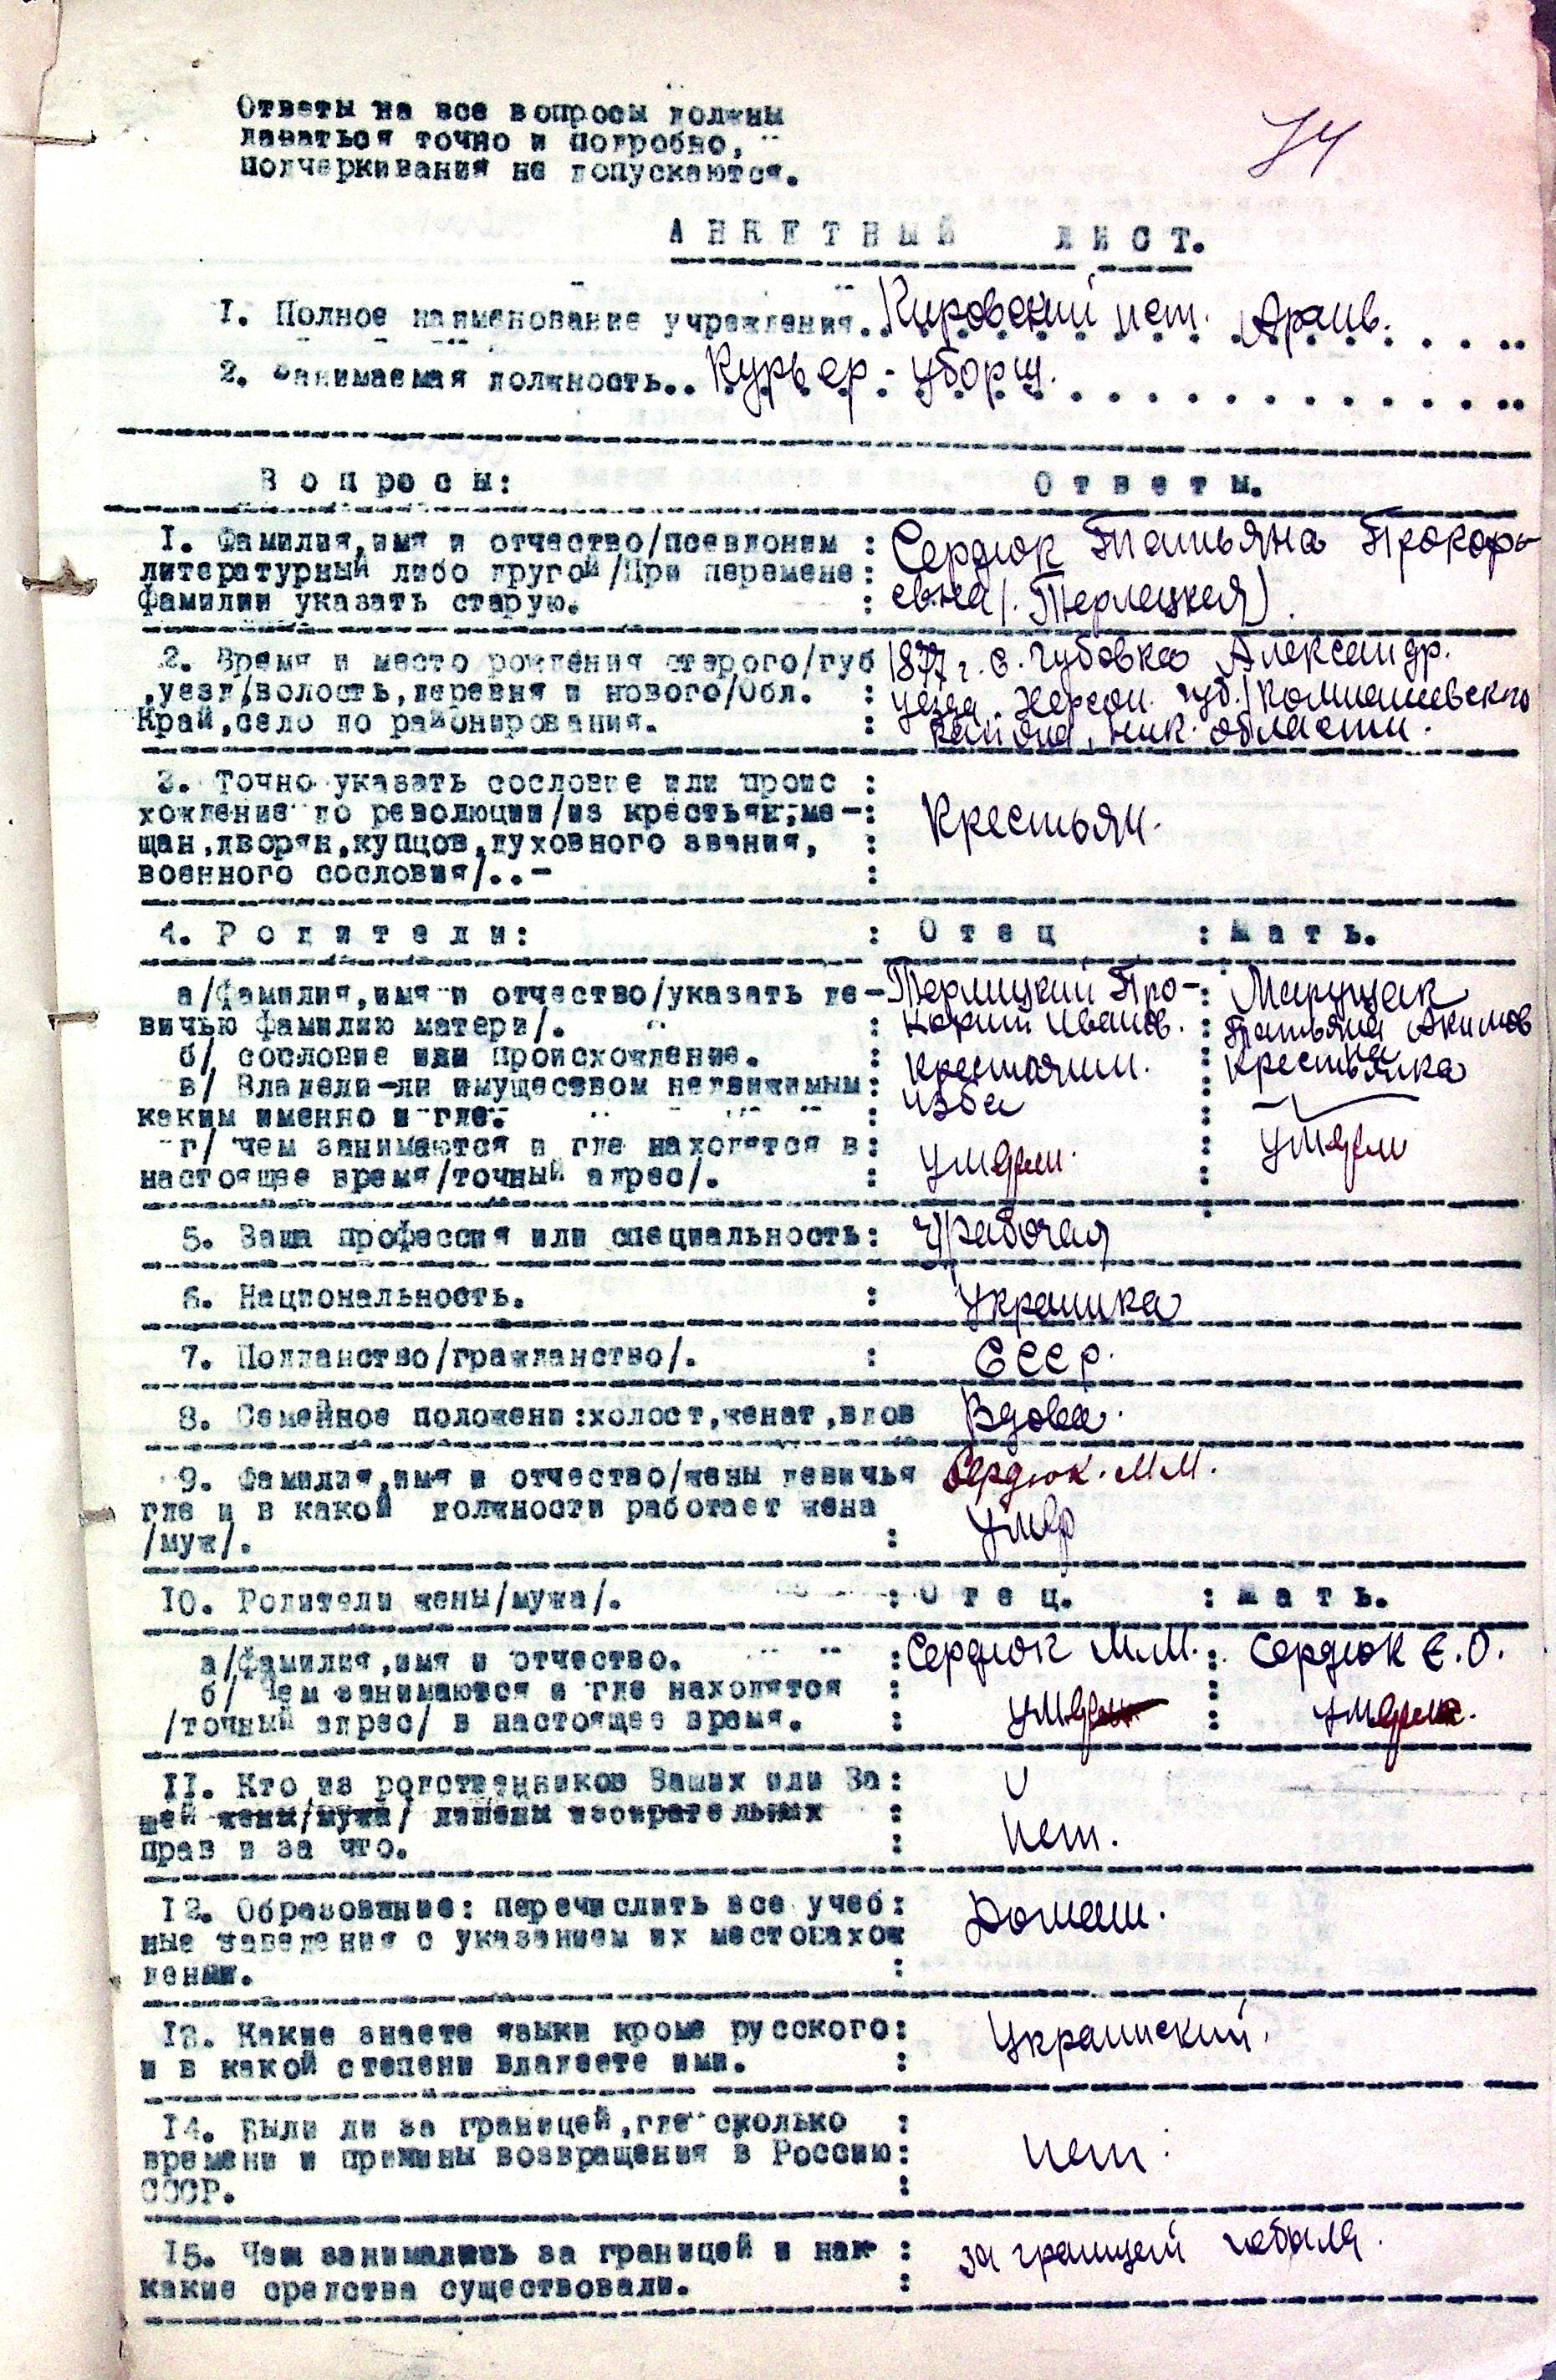 Ответы на все вопросы должны
даваться точно и подробно,
подчеркивания не допускаются.
74
АНКЕТНЫЙ ЛИСТ.
I. Полное наименование учреждения. Кировский ист. Архив.
2. Занимаемая должность.. Курьер - уборщ.
Вопросы: Ответы.
I. Фамилия,имя и отчество/псевдоним : Сердюк Татьяна Прокофь
литературный либо другой/При перемене: евна (Терлецкая).
фамилии указать старую. :
2. Время и место рождения старого/губ 1877 г. с. Губовка Александр.
,уезд/волость,деревня и нового/Обл. : уезда Херсон. губ./Компанеевского
Край,село по районирования. : района, Ник. области.
3. Точно указать сословие или проис :
хождение до революции/из крестьян,ме-: Крестьян.
щан,дворян,купцов,духовного звания, :
военного сословия/..- :
4. Родители: : Отец : Мать.
а/Фамилия,имя и отчество/указать де- Терлицкий Про-: Марущак
вичью фамилию матери/. : кофий Иванов. : Татьяна Акимов
на
б/ сословие или происхождение. : крестьянин. : Крестьянка
в/ Владели-ли имуществом недвижимым: изба
каким именно и где. : :
г/ чем занимаются и где находятся в: умерли. : умерли
настоящее время/точный адрес/. : :
5. Ваша профессия или специальность: Чрабочая
6. Национальность. : Украинка
7. Подданство/гражданство/. : СССР.
8. Семейное положени:холост,женат,вдов Вдова.
9. Фамилия,имя и отчество/жены девичья Сердюк. М.М.
где и в какой должности работает жена умер
/муж/. :
10. Родители жены/мужа/. : Отец. : Мать.
а/Фамилия,имя и отчество. : Сердюк М.М. : Сердюк Е.О.
б/ Чем занимаются и где находятся : :
/точный адрес/ в настоящее время. : умер : умерла.
II. Кто из родственников Ваших или Ва:
шей жены/мужа/ лишены избирательных : Нет.
прав и за что. :
12. Образование: перечислить все учеб: Домаш.
ные заведения с указанием их местонахож
дения. :
13. Какие знаете языки кроме русского: Украинский.
и в какой степени владеете ими. :
14. Были ли за границей,где сколько :
времени и причины возвращения в Россию: нет.
СССР. :
15. Чем занимались за границей и нак : за границей не была.
какие средства существовали. :